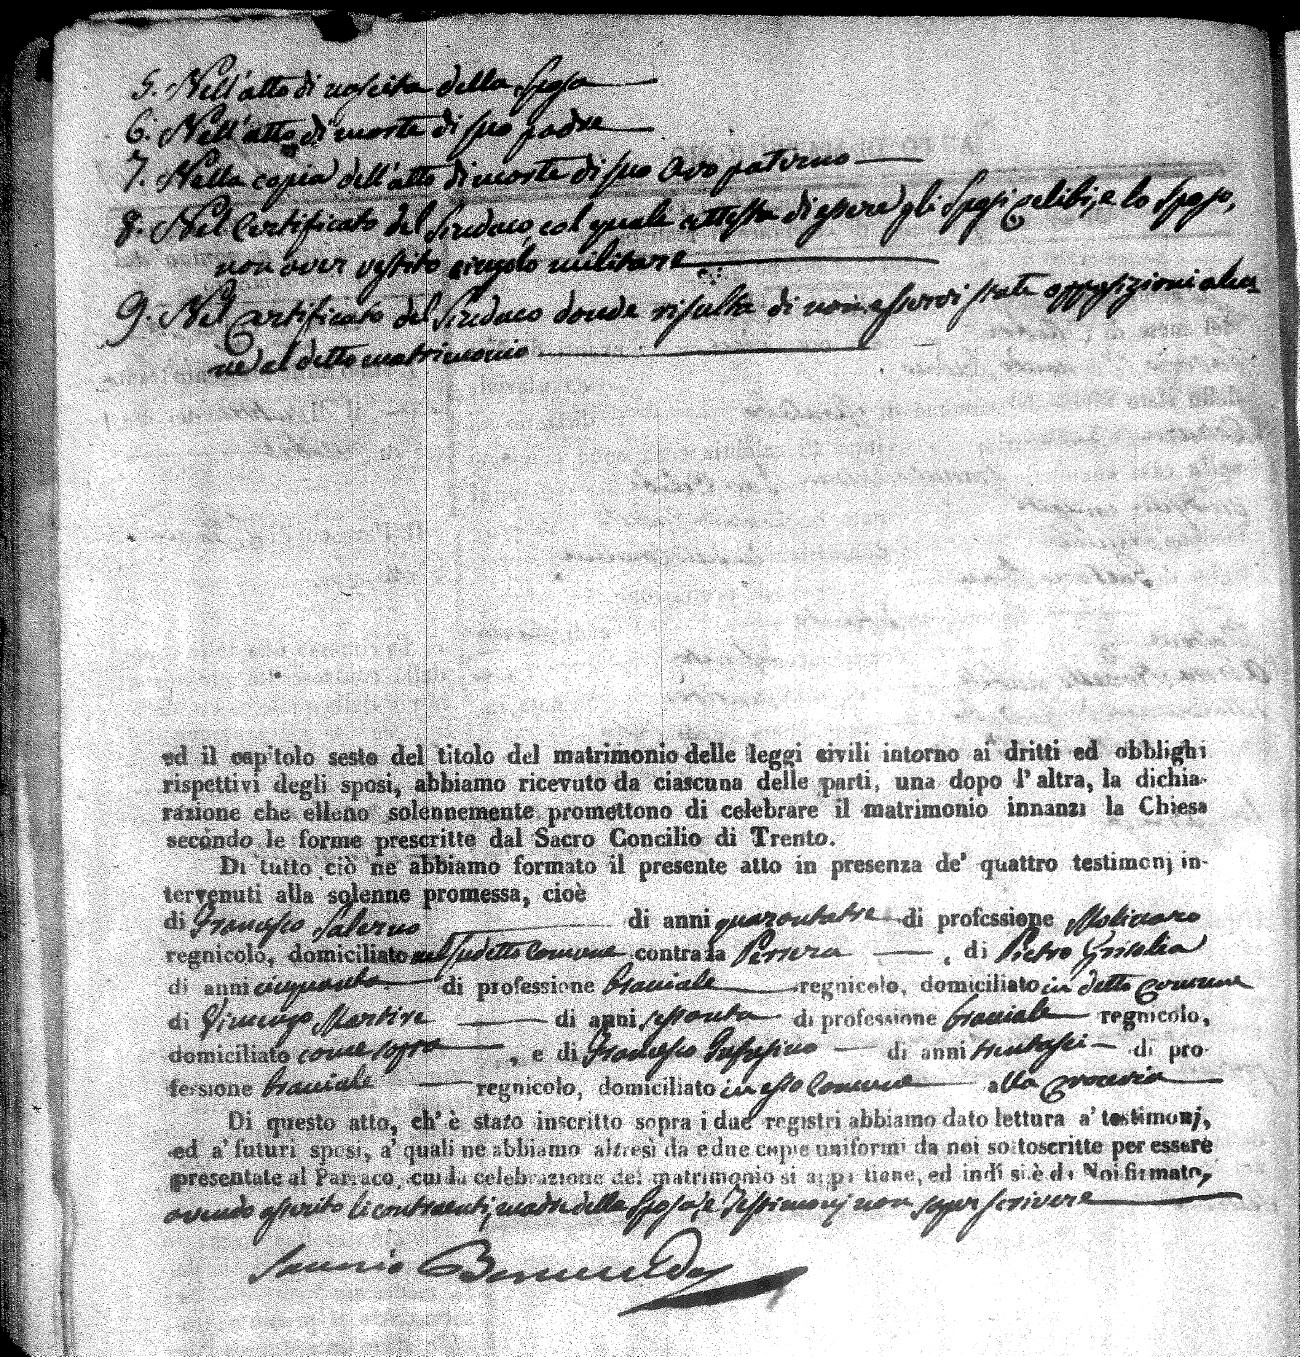 5. Nell'atto di nascita della Sposa
6. Nell'atto di morte di suo padre
7. Nella copia dell'atto di morte di suo avo paterno
8. Nel certificato del Sindaco, col quale attesta di essere gli Sposi celibi, e lo sposo,
non aver vestito cingolo militare
9. Nel certificato del Sindaco donde risulta di non esservi state opposizioni alcu-
ne al detto matrimonio
ed il capitolo sesto del titolo del matrimonio delle leggi civili intorno ai dritti ed obblighi
rispettivi degli sposi, abbiamo ricevuto da ciascuna delle parti, una dopo l'altra, la dichia-
razione che elleno solennemente promettono di celebrare il matrimonio innanzi la Chiesa
secondo le forme prescritte dal Sacro Concilio di Trento.
Di tutto ciò ne abbiamo formato il presente atto in presenza de' quattro testimonj in-
tervenuti alla solenne promessa, cioè
di Francesco Salerno di anni quarantatre di professione Molinaro
regnicolo, domiciliato nel sudetto Comune contrada Perrera, di Pietro Grisolia
di anni cinquanta di professione bracciale regnicolo, domiciliato in detto Comune
di Vincenzo Martire di anni sessanta di professione bracciale regnicolo,
domiciliato come sopra, e di Francesco Infusino di anni trentasei di pro-
fessione bracciale regnicolo, domiciliato in esso Comune alla
Di questo atto, ch' è stato inscritto sopra i due registri abbiamo dato lettura a' testimonj,
ed a' futuri sposi, a' quali ne abbiamo altresì date due copie uniformi da noi sottoscritte per essere
presentate al Parraco, cui la celebrazione del matrimonio si appartiene, ed indi si è da Noi firmato,
avendo asserito li contraenti, madre della Sposa, e Testimonj non saper scrivere